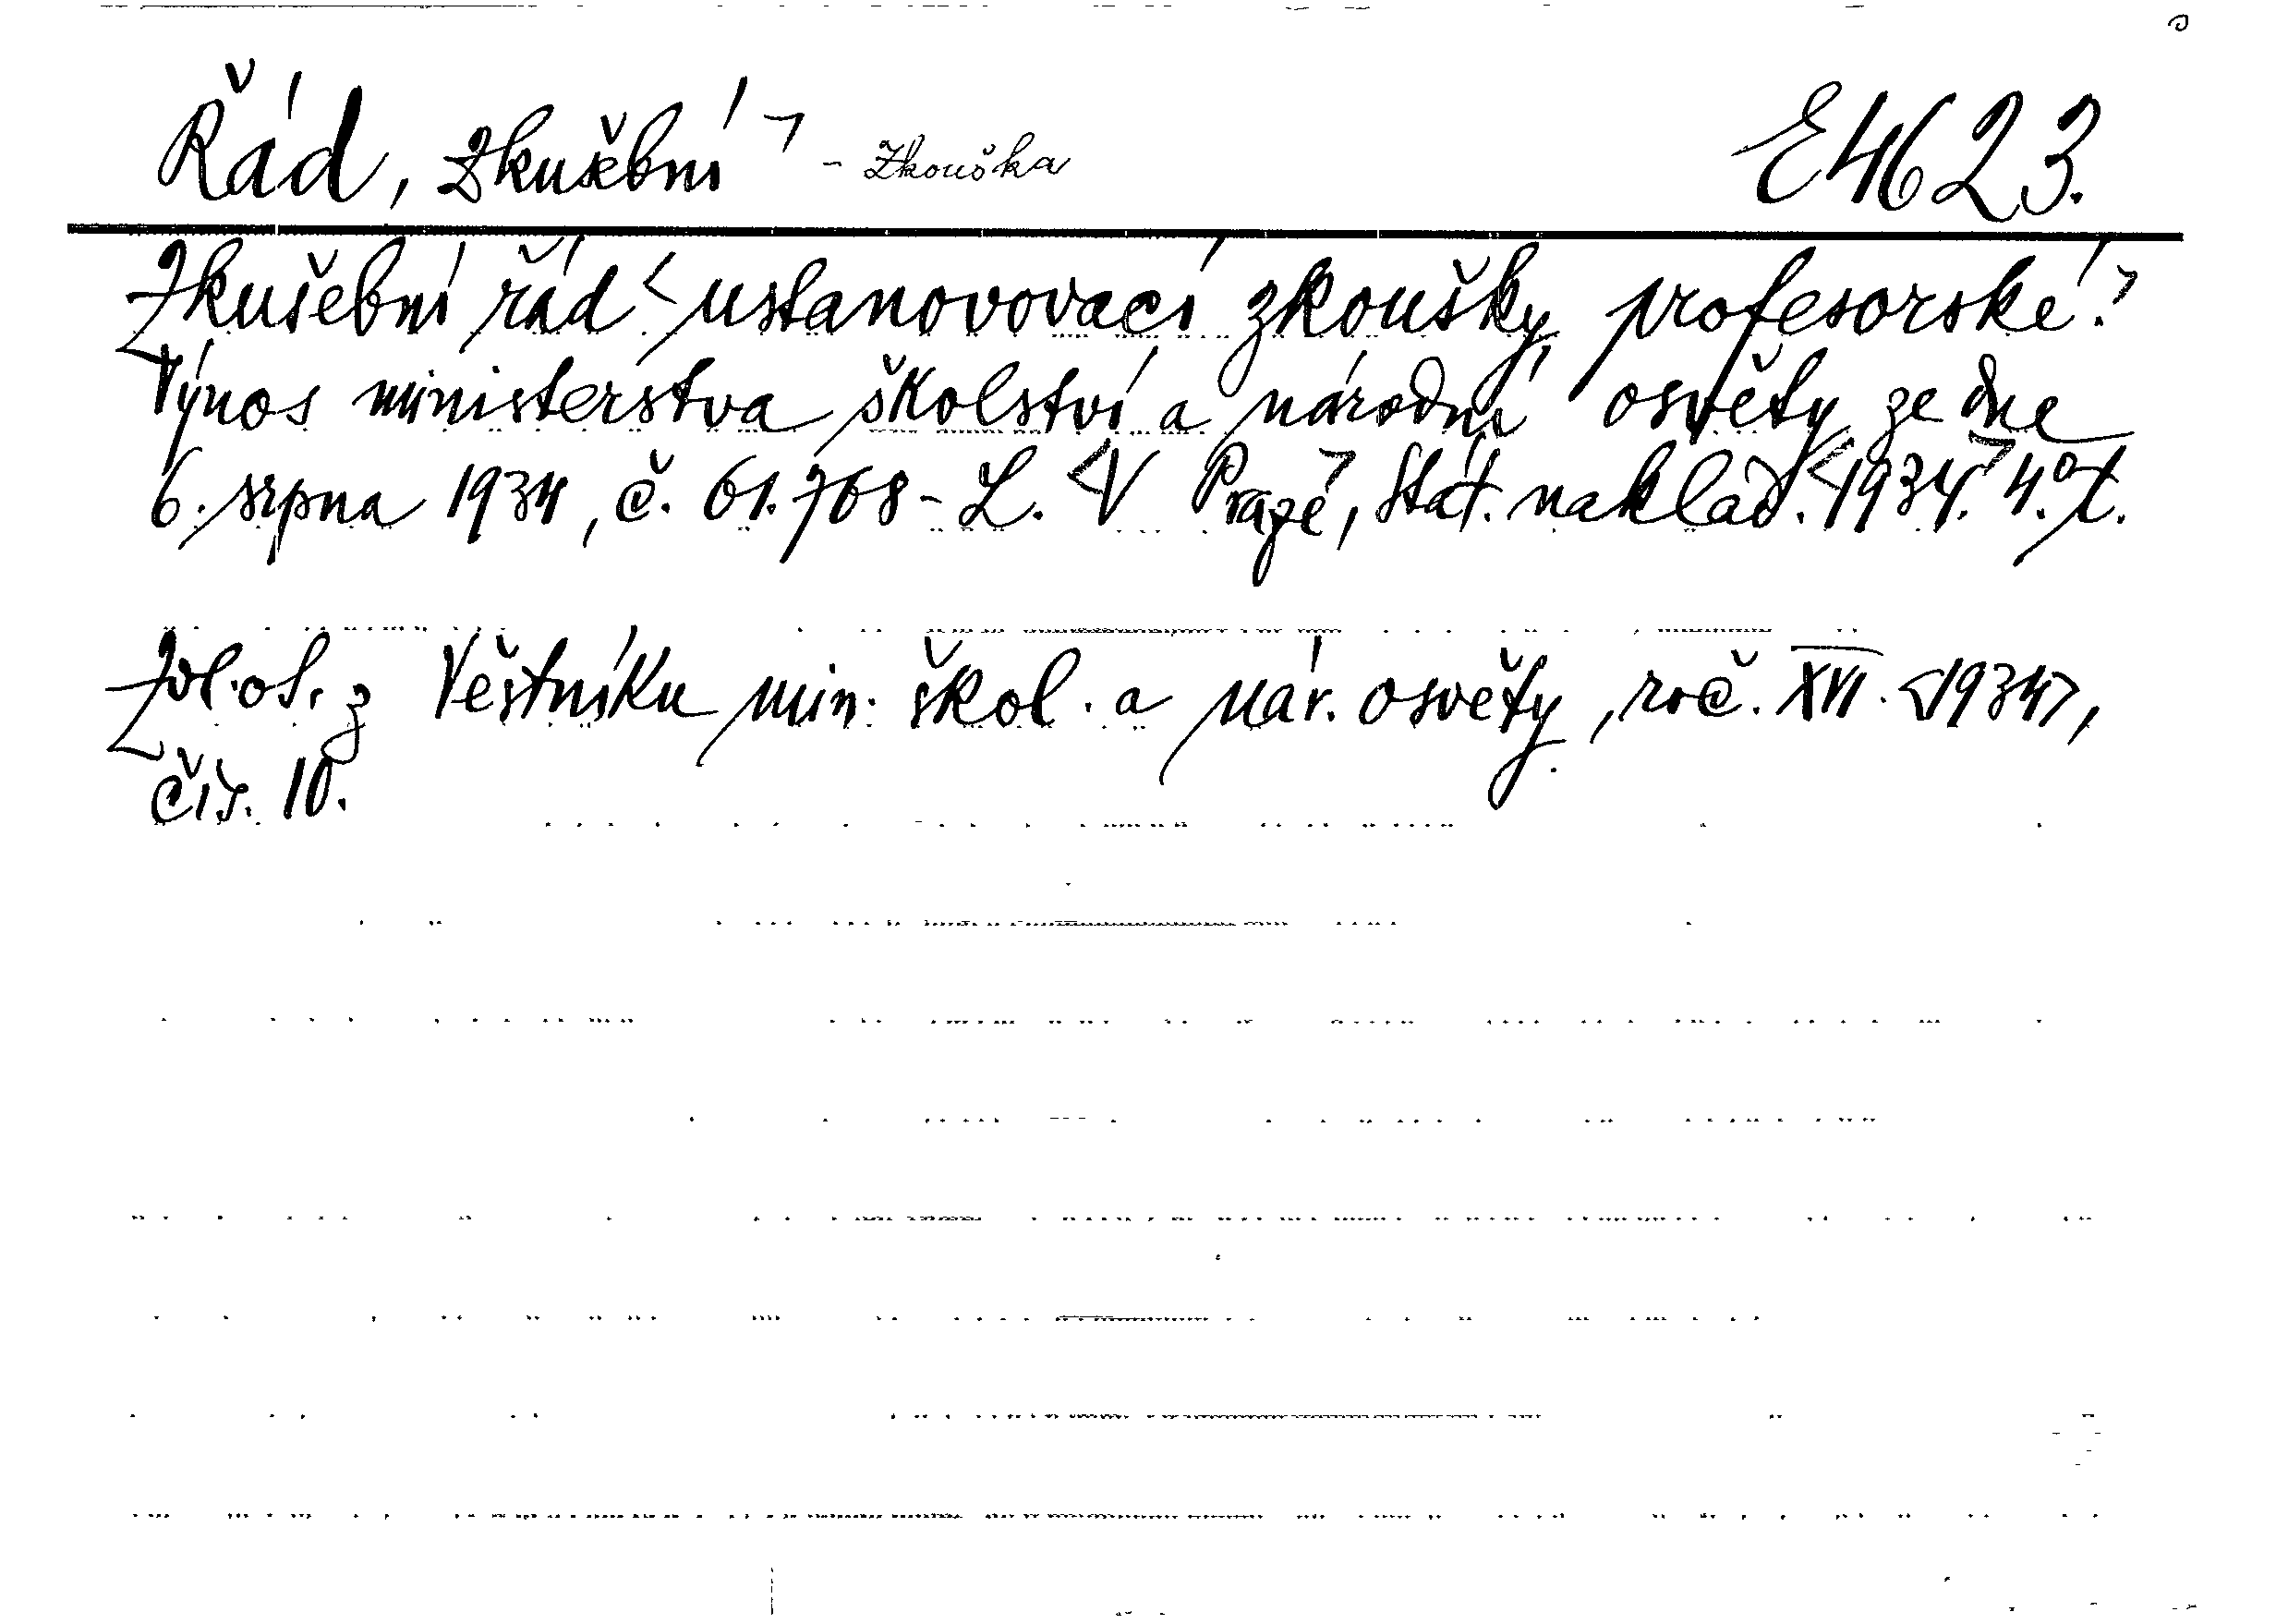 Řád, zkušební> - Zkouška E4623.
Zkušební řád <ustanovovací zkoušky profesorské.>
Výnos ministerstva školství a národní osvěty ze dne
6. srpna 1934, č. 61.768-L. <V Praze>, Stát. naklad. <1934.> 4.°
Zvl. ot. z Věstníku min. škol. a nár. osvěty, roč. XVI. <1934>,
čís. 10.